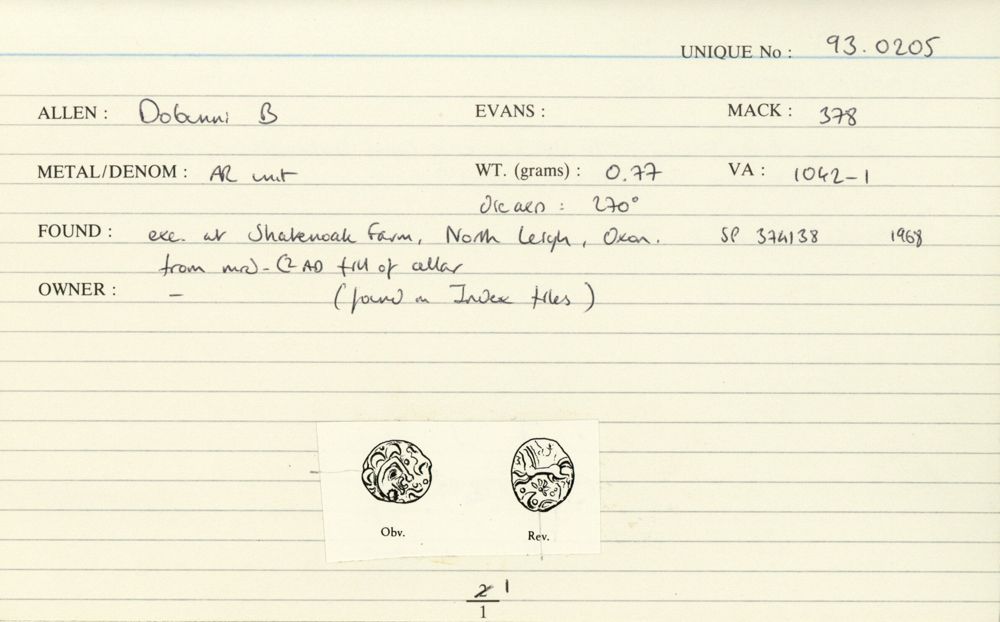 UNIQUE No : 93.0205
ALLEN : Dobunni B EVANS : MACK : 378
METAL/DENOM : AR unit WT. (grams) : 0.77 VA : 1042-1
die axis : 270°
FOUND : exc. at Shakenoak Farm, North Leigh, Oxon. SP 374138 1968
from mid-C2 AD fill of cellar
OWNER : – (found in Index files)
Obv. Rev.
2 1
1